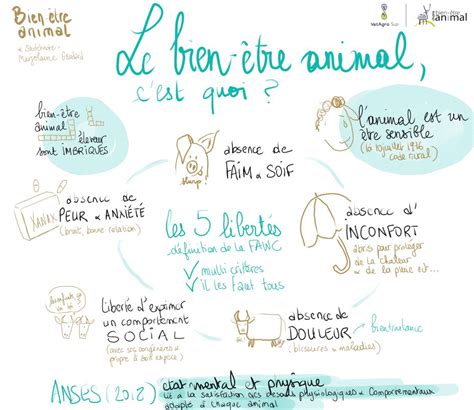 Bien-être
animal
VetAgro Sup
bien-être
animal
Le bien-être animal,
c'est quoi ?
bien-être
animal
éleveur
sont IMBRIQUÉS
absence de
FAIM & SOIF
l'animal est un
être sensible
(loi 10 juillet 1976
code rural)
absence de
PEUR & ANXIÉTÉ
(bruit, bonne relation)
XANAX
les 5 libertés
définition de la FAWC
✓ multi critères
✓ il les faut tous
absence d'
INCONFORT
abris pour protéger
de la chaleur
& de la pluie et...
liberté d'exprimer
un comportement
SOCIAL
(avec ses congénères &
propre à son espèce)
absence de
DOULEUR
(blessures & maladies)
→ bientraitance
ANSES (2018) état mental et physique
lié à la satisfaction des besoins physiologiques & comportementaux
adapté à chaque animal